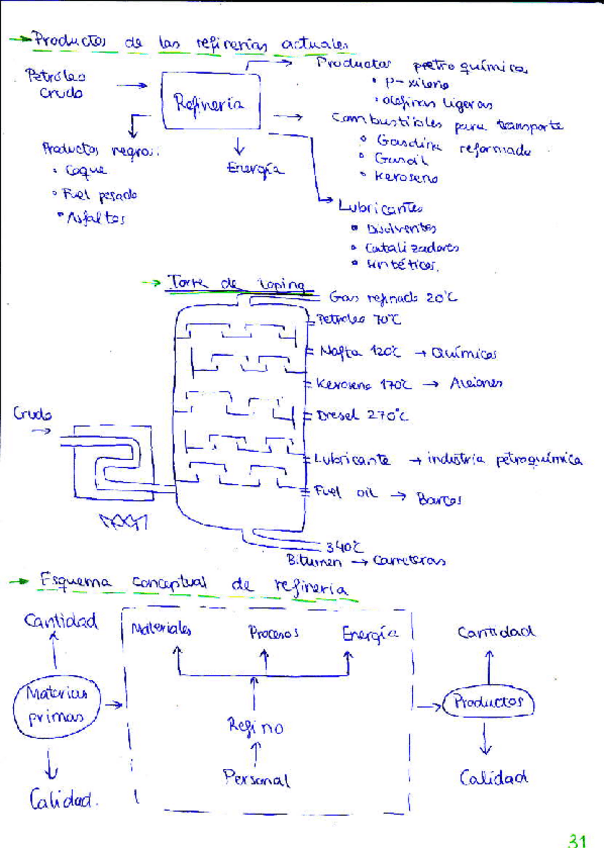 → Productos de las refinerías actuales
Petróleo
crudo
Refinería
Productos pretroquímica
• p-xileno
• olefinas ligeras
Combustibles para transporte
• Gasolina reformada
• Gasoil
• Keroseno
Productos negros:
• Coque
• Fuel pesado
• Asfaltos
Energía
Lubricantes
• Disolventes
• Catalizadores
• sintéticos.
→ Torre de toping
Gas refinado 20°C
Petróleo 70°C
Nafta 120°C → Químicos
Keroseno 170°C → Aviones
Diesel 270°C
Crudo
Lubricante → industria petroquímica
Fuel oil → Barcos
340°C
Bitumen → Carreteras
→ Esquema conceptual de refinería
Cantidad
Materiales Procesos Energía
Cantidad
Materias
primas
Productos
Refino
Personal
Calidad.
Calidad
31